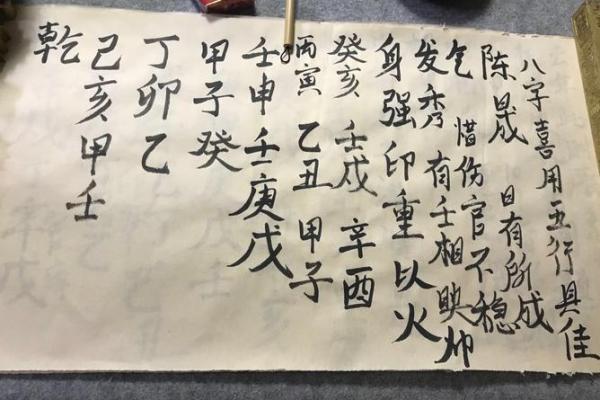 乾
己亥甲壬
丁卯乙
甲子癸
壬申壬庚戊
丙寅 乙丑 甲子
癸亥 壬戌 辛酉
身强印重以火
发秀 有壬相映帅
气 惜伤官不稳
陈晟 日有所成
八字喜用五行具佳